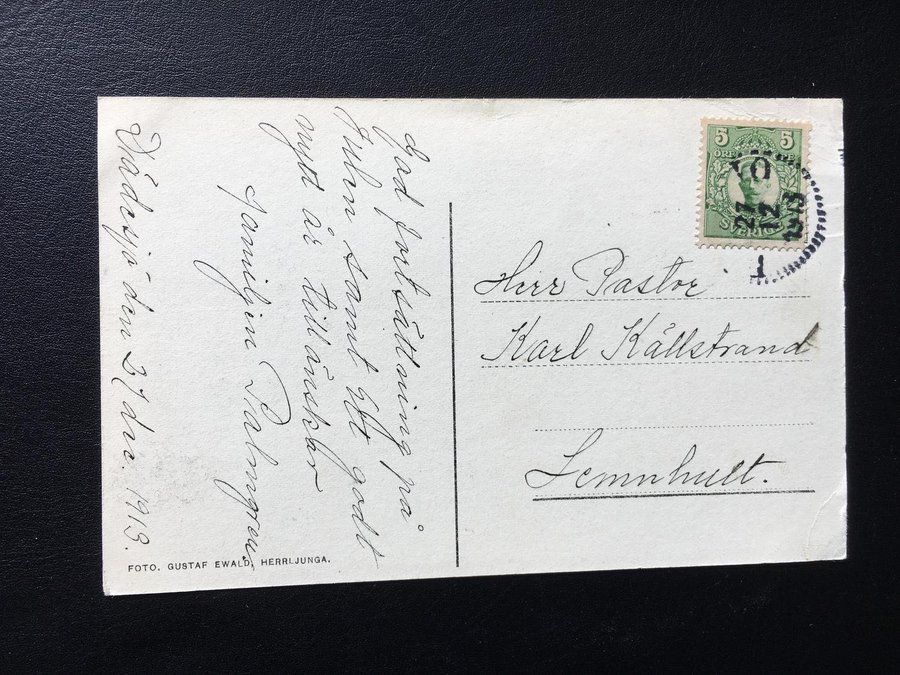 God fortsättning på
Julen samt ett godt
nytt år tillönskar
Familjen Palmgren
den 27 dec. 1913.
FOTO. GUSTAF EWALD, HERRLJUNGA.
5 5
ÖRE
SVERIGE
27
12
1913
1
Herr Pastor
Karl Källstrand
Lemnhult.